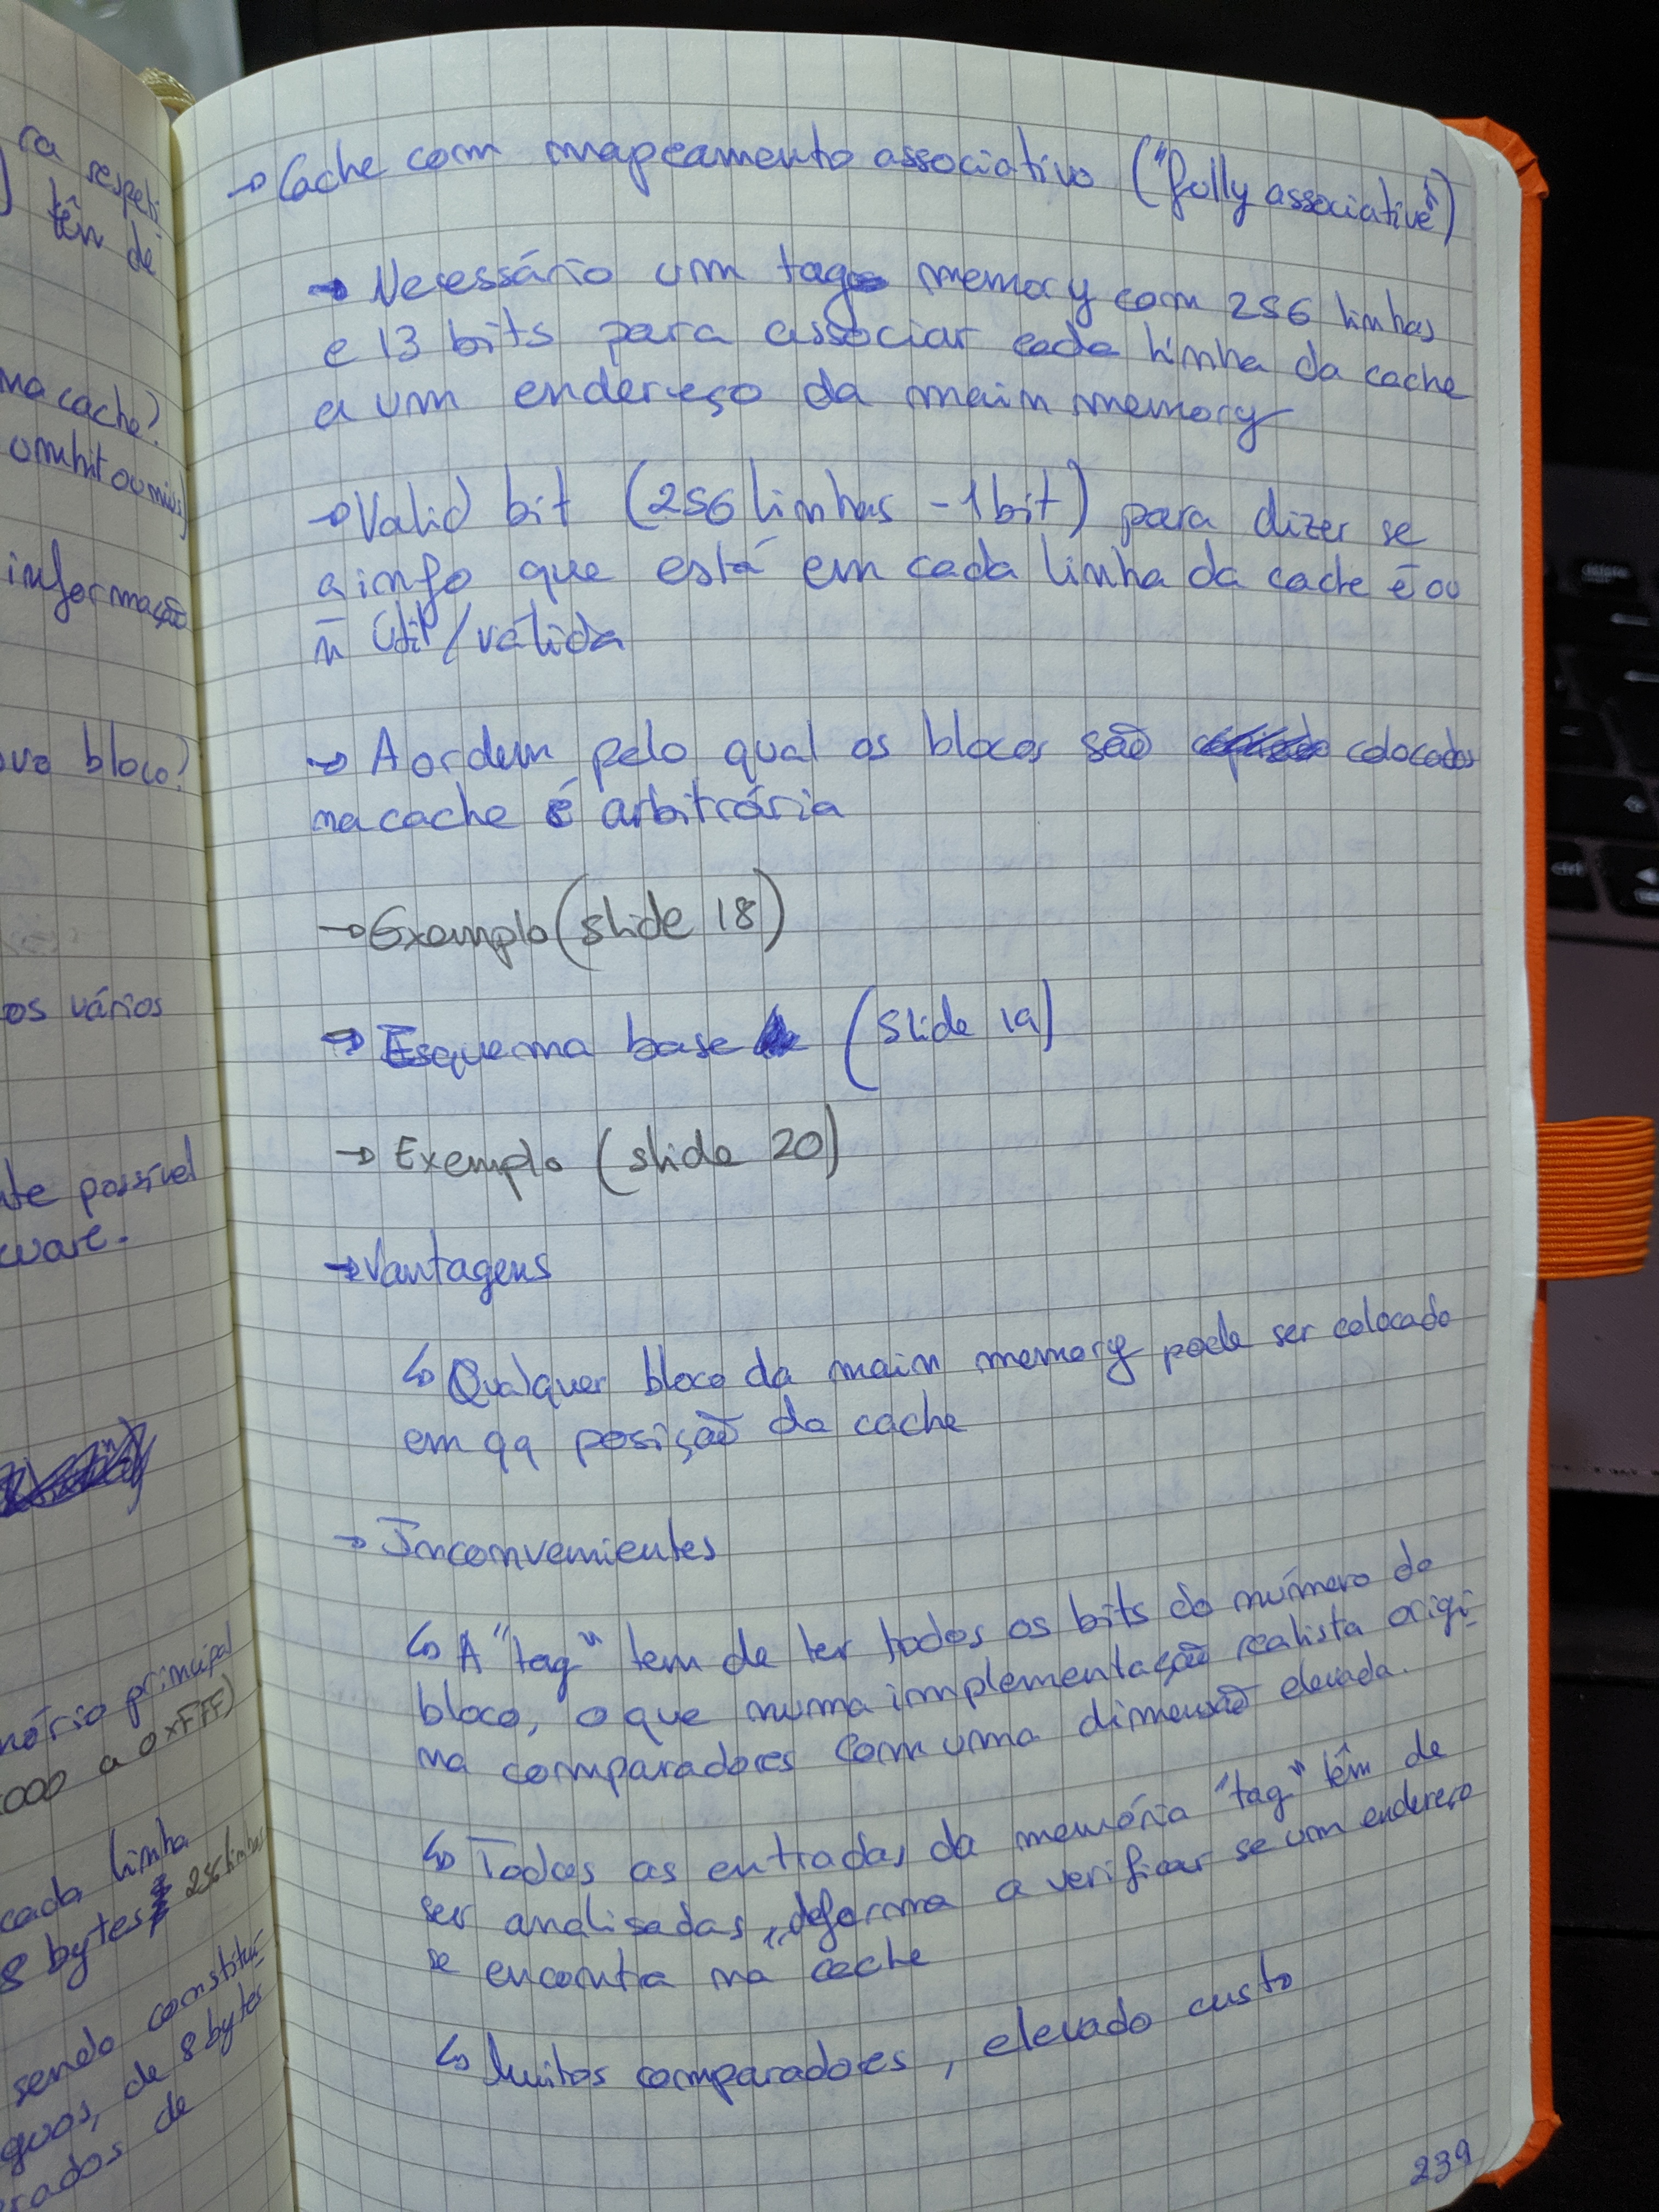 ra respeti
têm de
na cache?
um bit ou mais)
informação
ovo bloco?
os vários
nte possível
ware.
mória principal
000 a 0xFFF)
cada linha
8 bytes 256 linhas
sendo constituí-
guos, de 8 bytes
rados de
→ Cache com mapeamento associativo ("fully associative")
→ Necessário um tag memory com 256 linhas
e 13 bits para associar cada linha da cache
a um endereço da main memory
→ Valid bit (256 linhas - 1 bit) para dizer se
a info que está em cada linha da cache é ou
ñ útil/válida
→ A ordem pelo qual os blocos são colocados
na cache é arbitrária
→ Exemplo (slide 18)
→ Esquema base (slide 19)
→ Exemplo (slide 20)
→ Vantagens
↳ Qualquer bloco da main memory pode ser colocado
em qq posição da cache
→ Inconvenientes
↳ A "tag" tem de ter todos os bits do número do
bloco, o que numa implementação realista origi-
na comparadores com uma dimensão elevada.
↳ Todas as entradas da memória "tag" têm de
ser analisadas, de forma a verificar se um endereço
se encontra na cache
↳ Muitos comparadores, elevado custo
239